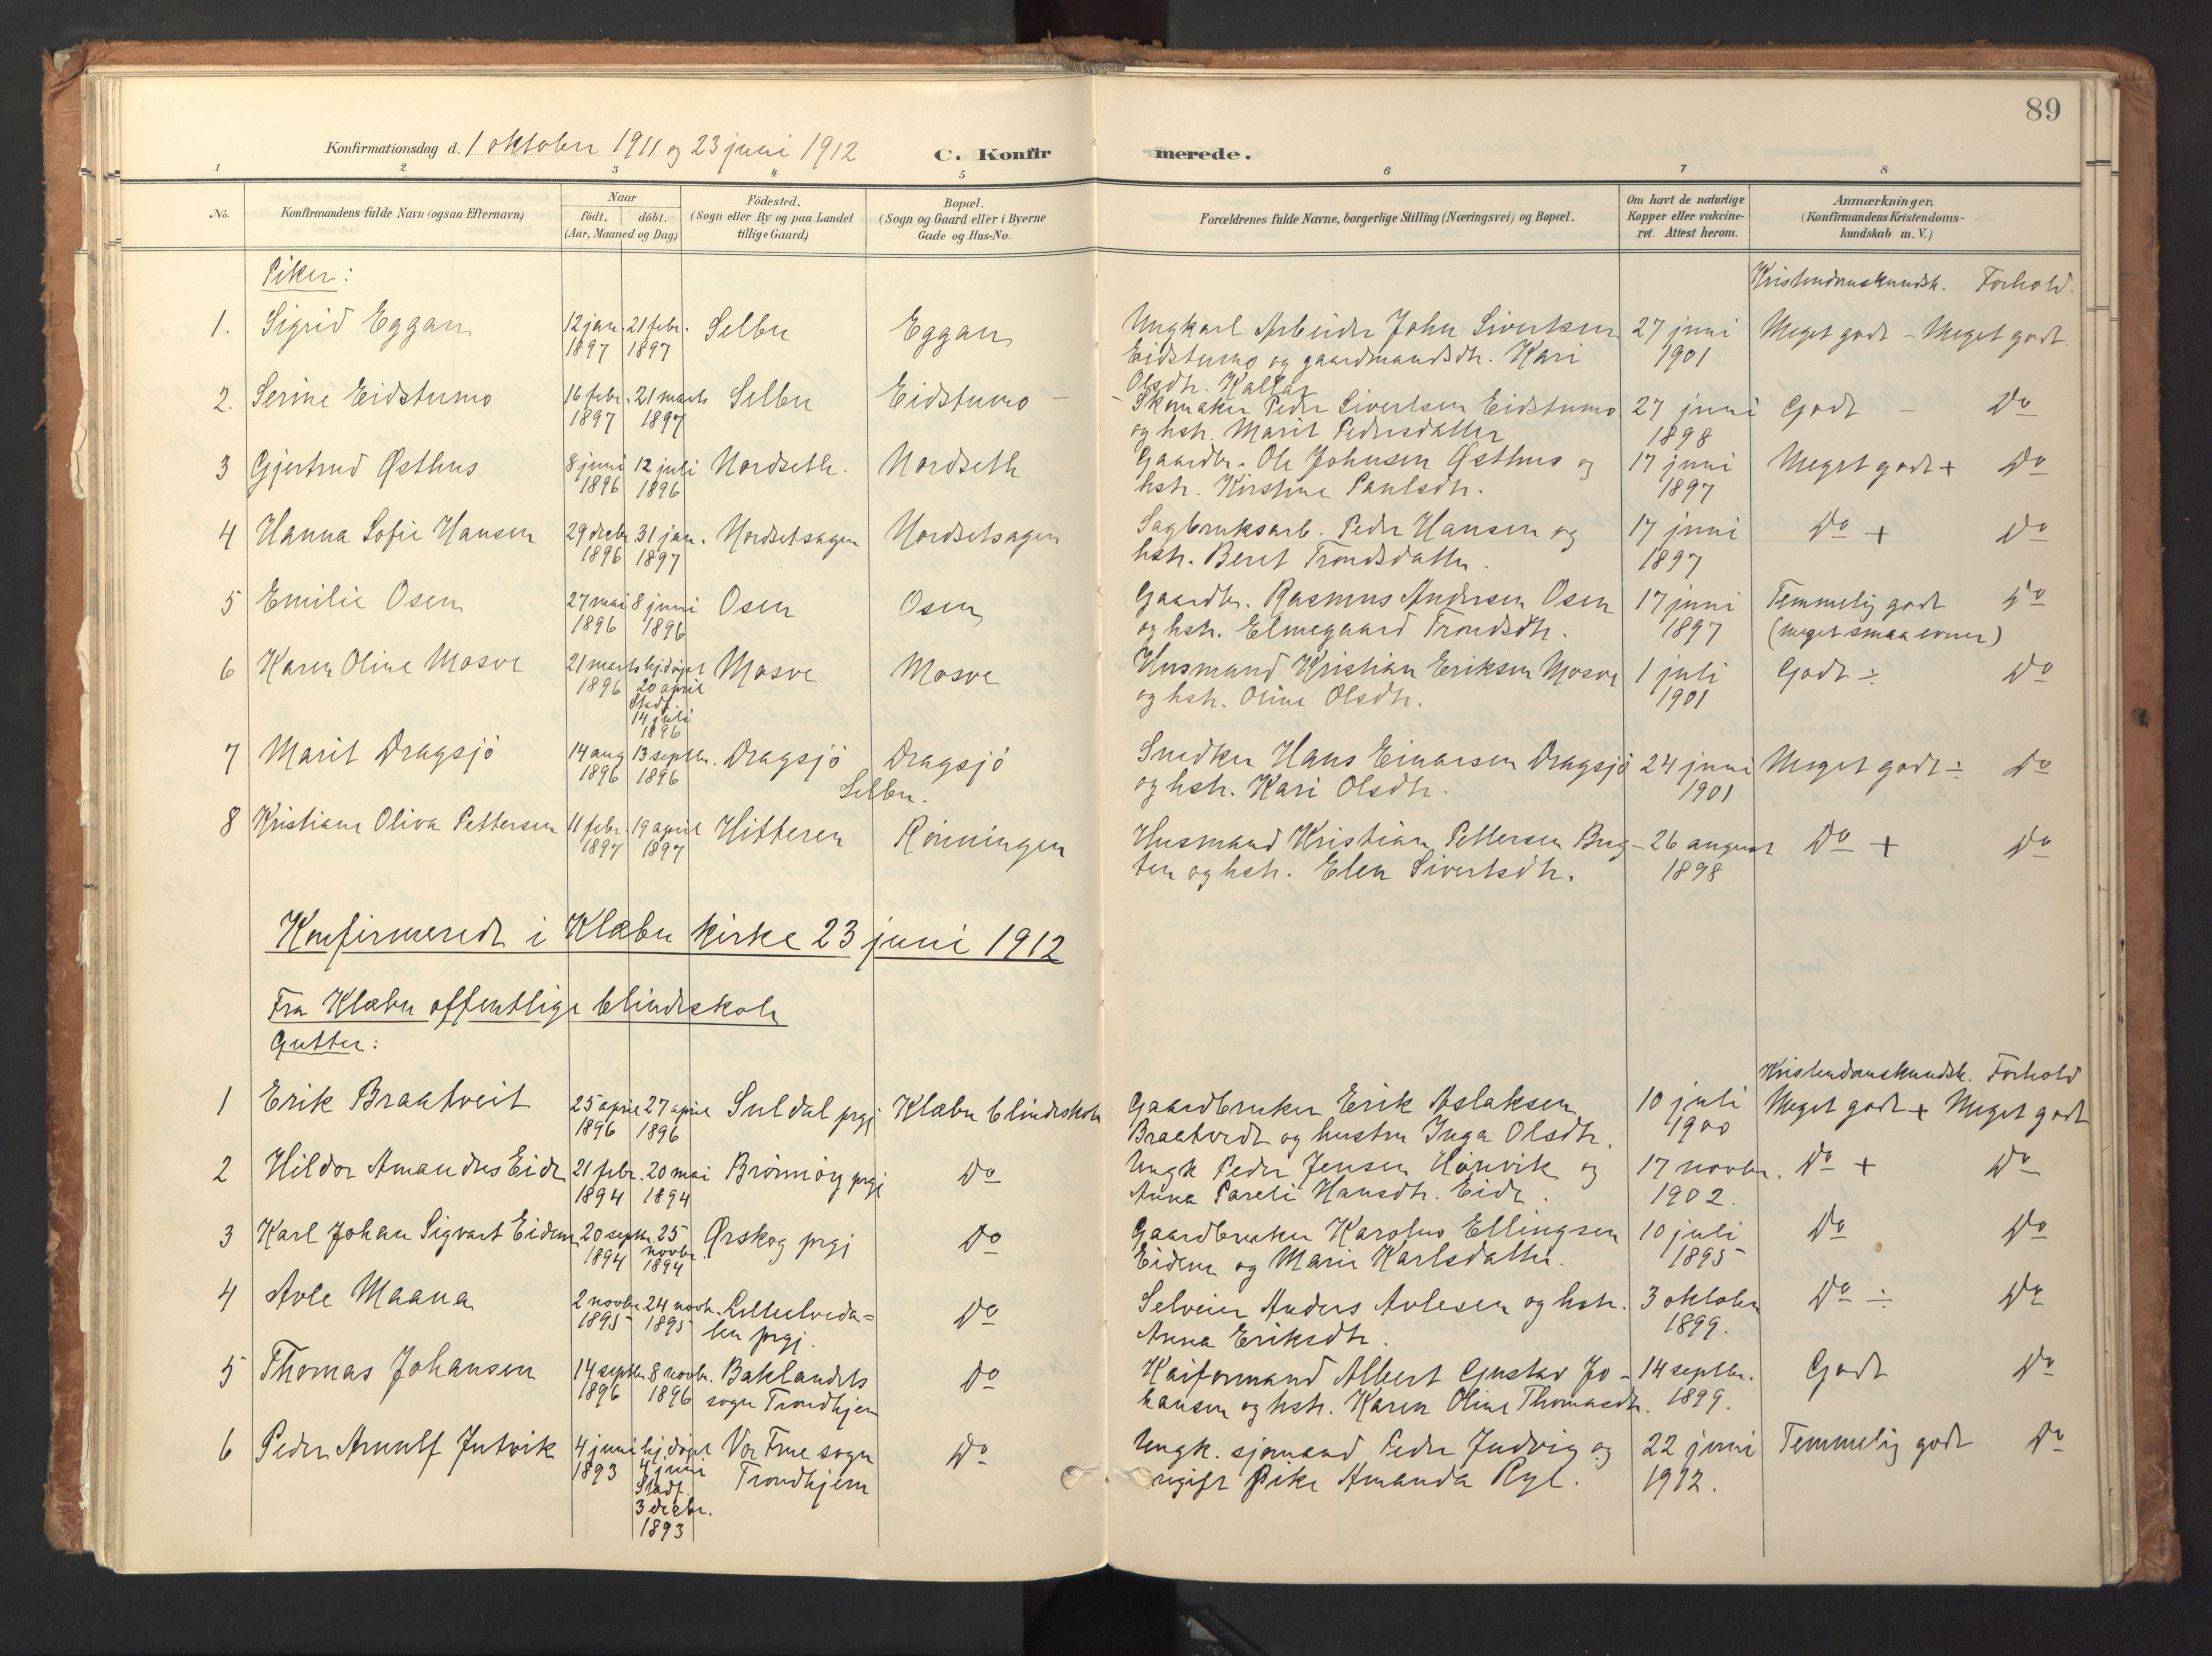 89
Konfirmationsdag d. 1 oktober 1911 og 23 juni 1912
C. Konfirmerede.
1 2 3 4 5 6 7 8
No.
Konfirmandens fulde Navn (ogsaa Efternavn)
Naar
födt. döbt.
(Aar, Maaned og Dag)
Födested.
(Sogn eller By og paa Landet
tillige Gaard)
Bopæl.
(Sogn og Gaard eller i Byerne
Gade og Hus-No.
Forældrenes fulde Navne, borgerlige Stilling (Næringsvei) og Bopæl.
Om havt de naturlige
Kopper eller vakcine-
ret. Attest herom.
Anmærkninger.
(Konfirmandens Kristendoms-
kundskab m. V.)
Piker:
Kristendomskundsk. Forhold.
1. Sigrid Eggan 12 jan. 21 febr. Selbu Eggan Ungkarl Arbeider John Sivertsen 27 juni Meget godt - Meget godt
1897 1897 Eidstumo og gaardmandsdtr. Kari 1901
Olsdtr. Kallar
2. Serine Eidstumo 16 febr. 21 marts Selbu Eidstumo - Skomaker Peder Sivertsen Eidstumo 27 juni Godt - Do
1897 1897 og hstr. Marit Pedersdatter 1898
3 Gjertrud Østhus 8 juni 12 juli Nordseth. Nordseth Gaardbr. Ole Johnsen Østhus og 17 juni Meget godt + Do
1896 1896 hstr. Kirstine Paulsdtr. 1897
4 Hanna Sofie Hansen 29 decbr 31 jan. Nordsetsagen Nordsetsagen Sagbruksarb. Peder Hansen og 17 juni Do + Do
1896 1897 hstr. Beret Trondsdatter. 1897
5 Emilie Osen 27 mai 8 juni Osen Osen Gaardbr. Rasmus Andersen Osen 17 juni Temmelig godt Do
1896 1896 og hstr. Elmegaard Trondsdtr. 1897 (meget smaa evner)
6 Karen Oline Mosve 21 marts hjdøpt Mosve Mosve Husmand Kristian Eriksen Mosve 1 juli Godt ÷ Do
1896 20 april og hstr. Oline Olsdtr. 1901
Stadf.
14 juli
1896
7 Marit Dragsjö 14 aug 13 septbr. Dragsjö Dragsjö Snedker Hans Einarsen Dragsjö 24 juni Meget godt ÷ Do
1896 1896 og hstr. Kari Olsdtr. 1901
Selbu.
8 Kristiane Oliva Pettersen 11 febr. 19 april Hitteren Rönningen Husmand Kristian Pettersen Bug- 26 august Do + Do
1897 1897 ten og hstr. Elen Sivertsdtr. 1898
Konfirmeredt i Klæbu kirke 23 juni 1912
Fra Klæbu offentlige blindeskole
Gutter:
Kristendomskundsk. Forhold
1 Erik Braatveit 25 april 27 april Suldal prgj Klæbu blindeskole Gaardbruker Erik Aslaksen 10 juli Meget godt + Meget godt
1896 1896 Braatvedt og hustru Inga Olsdtr. 1900
2 Hildor Amandus Eide 21 febr. 20 mai Brönnöy prgj Do Ungk Peder Jensen Hönvik og 17 novbr. Do + Do
1894 1894 Anna Pareli Hansdtr. Eide. 1902.
3 Karl Johan Sigvart Eidem 20 septbr. 25 Ørskog prgj Do Gaardbruker Karolus Ellingsen 10 juli Do Do
1894 novbr. 1894 Eidem og Marie Karlsdatter. 1895
4 Avle Maana 2 novbr. 24 novbr. Lilleelveda= Do Selveier Anders Avlesen og hstr. 3 oktober Do ÷ Do
1895 1895 len prgj. Anna Eriksdtr. 1899.
5 Thomas Johansen 14 septbr. 8 novbr. Baklandets Do Kaiformand Albert Gustav Jo- 14 septbr. Godt Do
1896 1896 sogn Trondhjem hansen og hstr. Karen Oline Thomasdtr. 1899.
6 Peder Arnulf Jutvik 4 juni hjdöpt Vor Frue sogn Do Ungk. sjömand Peder Judvig og 22 juni Temmelig godt Do
1893 4 juni Trondhjem ugift Pike Amanda Ryl. 1912.
Stadf.
3 decbr.
1893